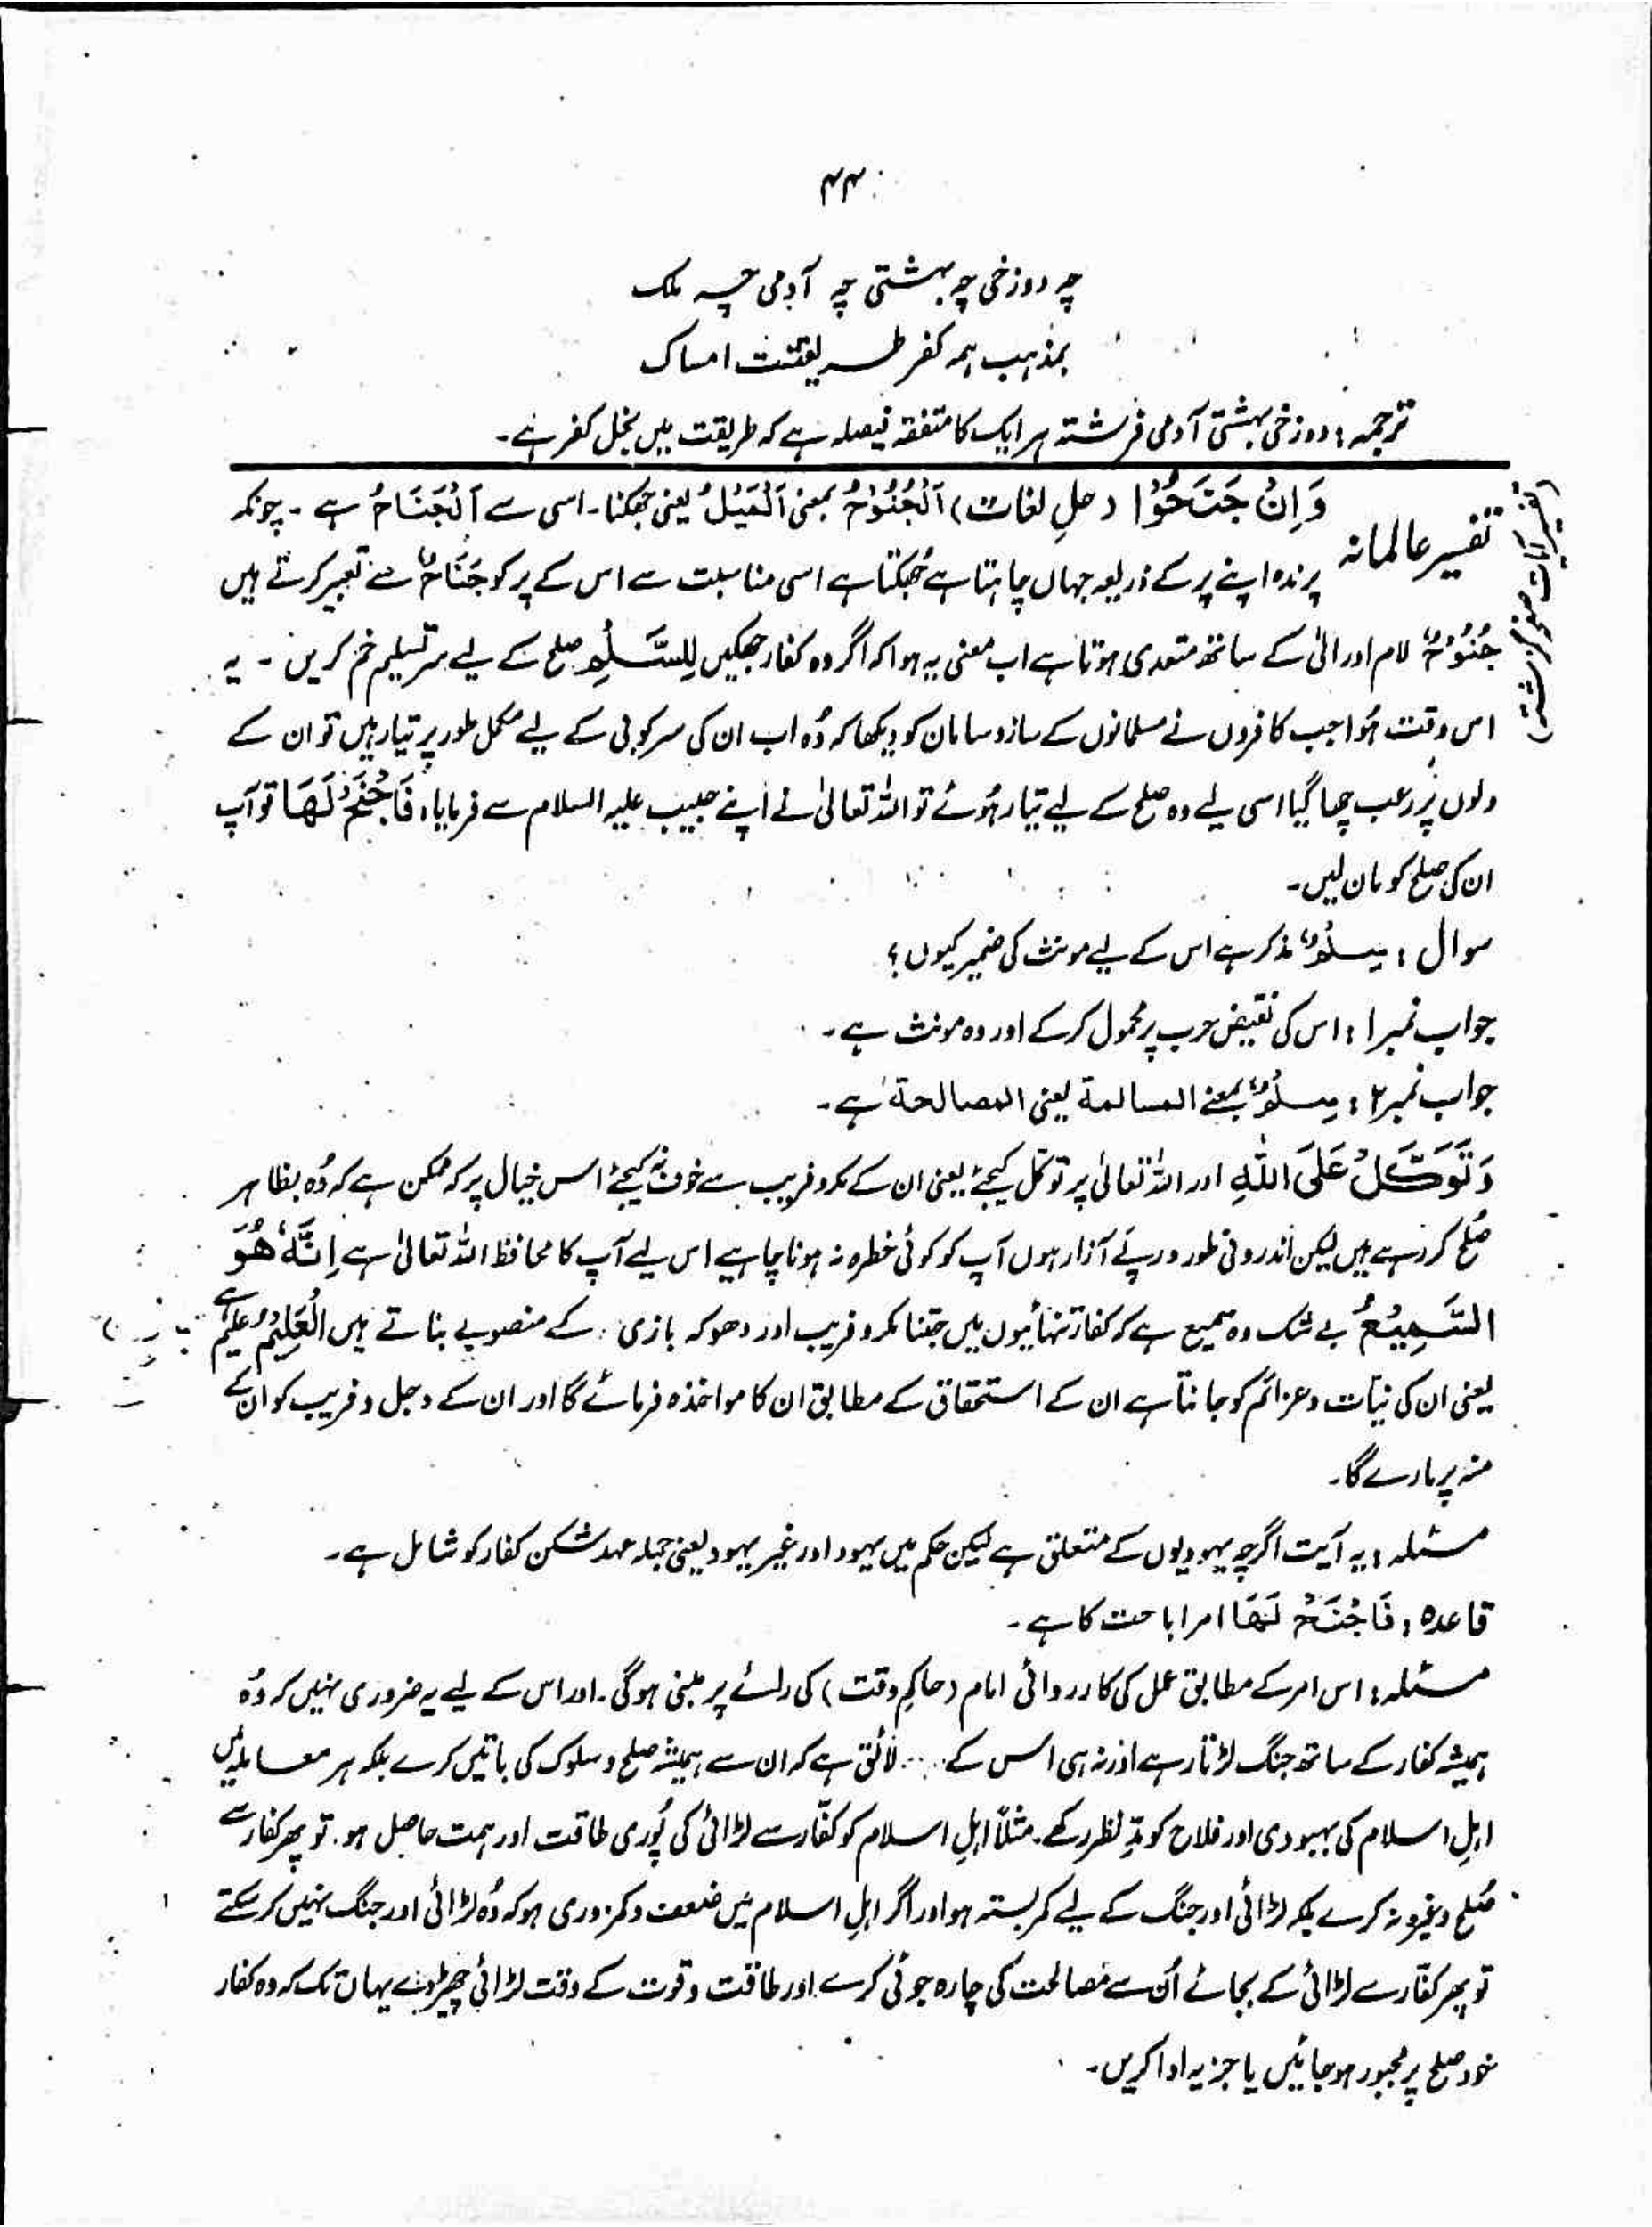 ۴۴
چہ دوزخی چہ بہشتی چہ آدمی چہ ملک
بمذہب ہمہ کفر طریقتست امساک
ترجمہ: دوزخی بہشتی آدمی فرشتہ ہر ایک کا متفقہ فیصلہ ہے کہ طریقت میں بخل کفر ہے۔
(تفسیر آیات صفحہ گزشتہ)
تفسیر عالمانہ
وَاِنْ جَنَحُوْا (حلِ لغات) اَلْجُنُوْحُ بمعنی اَلْمَیْلُ یعنی جھکنا۔ اسی سے اَلْجَنَاحُ ہے۔ چونکہ
پرندہ اپنے پر کے ذریعہ جہاں چاہتا ہے جُھکتا ہے اسی مناسبت سے اس کے پر کو جَنَاحٌ سے تعبیر کرتے ہیں
جُنُوْحٌ لام اور الیٰ کے ساتھ متعدی ہوتا ہے اب معنی یہ ہوا کہ اگر وہ کفار جھکیں لِلسَّلْمِ صلح کے لیے سر تسلیم خم کریں۔ یہ
اس وقت ہُوا جب کافروں نے مسلمانوں کے ساز و سامان کو دیکھا کہ وُہ اب ان کی سرکوبی کے لیے مکمل طور پر تیار ہیں تو ان کے
دلوں پر رعب چھا گیا اسی لیے وہ صلح کے لیے تیار ہُوئے تو اللہ تعالیٰ نے اپنے حبیب علیہ السلام سے فرمایا، فَاجْنَحْ لَھَا تو آپ
ان کی صلح کو مان لیں۔
سوال: سِلْمٌ مذکر ہے اس کے لیے مونث کی ضمیر کیوں؟
جواب نمبر ۱: اس کی نقیض حرب پر محمول کرکے اور وہ مونث ہے۔
جواب نمبر ۲: سِلْمٌ بمعنے المسالمة یعنی المصالحة ہے۔
وَتَوَکَّلْ عَلَی اللّٰہِ اور اللہ تعالیٰ پر توکّل کیجئے یعنی ان کے مکر و فریب سے خوف نہ کیجئے اس خیال پر کہ ممکن ہے کہ وُہ بظاہر
صُلح کر رہے ہیں لیکن اندرونی طور درپئے آزار ہوں آپ کو کوئی خطرہ نہ ہونا چاہیے اس لیے آپ کا محافظ اللہ تعالیٰ ہے اِنَّہٗ ھُوَ
السَّمِیْعُ بے شک وہ سمیع ہے کہ کفار تنہائیوں میں جتنا مکر و فریب اور دھوکہ بازی کے منصوبے بناتے ہیں الْعَلِیْمُ علیم ہے
یعنی ان کی نیّات و عزائم کو جانتا ہے ان کے استحقاق کے مطابق ان کا مواخذہ فرمائے گا اور ان کے دجل و فریب کو ان کے
منہ پر مارے گا۔
مسئلہ: یہ آیت اگرچہ یہودیوں کے متعلق ہے لیکن حکم میں یہود اور غیر یہود یعنی جملہ عہد شکن کفار کو شامل ہے۔
قاعدہ: فَاجْنَحْ لَھَا امر اباحت کا ہے۔
مسئلہ: اس امر کے مطابق عمل کی کارروائی امام (حاکمِ وقت) کی رائے پر مبنی ہوگی۔ اور اس کے لیے یہ ضروری نہیں کہ وُہ
ہمیشہ کفار کے ساتھ جنگ لڑتا رہے اور نہ ہی اس کے ... لائق ہے کہ ان سے ہمیشہ صلح و سلوک کی باتیں کرے بلکہ ہر معاملہ میں
اہلِ اسلام کی بہبودی اور فلاح کو مدِّ نظر رکھے۔ مثلاً اہلِ اسلام کو کفّار سے لڑائی کی پُوری طاقت اور ہمت حاصل ہو۔ تو پھر کفار سے
صُلح وغیرہ نہ کرے بلکہ لڑائی اور جنگ کے لیے کمر بستہ ہو اور اگر اہلِ اسلام میں ضعف و کمزوری ہو کہ وُہ لڑائی اور جنگ نہیں کرسکتے
تو پھر کفّار سے لڑائی کے بجائے اُن سے مصالحت کی چارہ جوئی کرے اور طاقت و قوت کے وقت لڑائی چھیڑ دے یہاں تک کہ وہ کفار
خود صلح پر مجبور ہوجائیں یا جزیہ ادا کریں۔